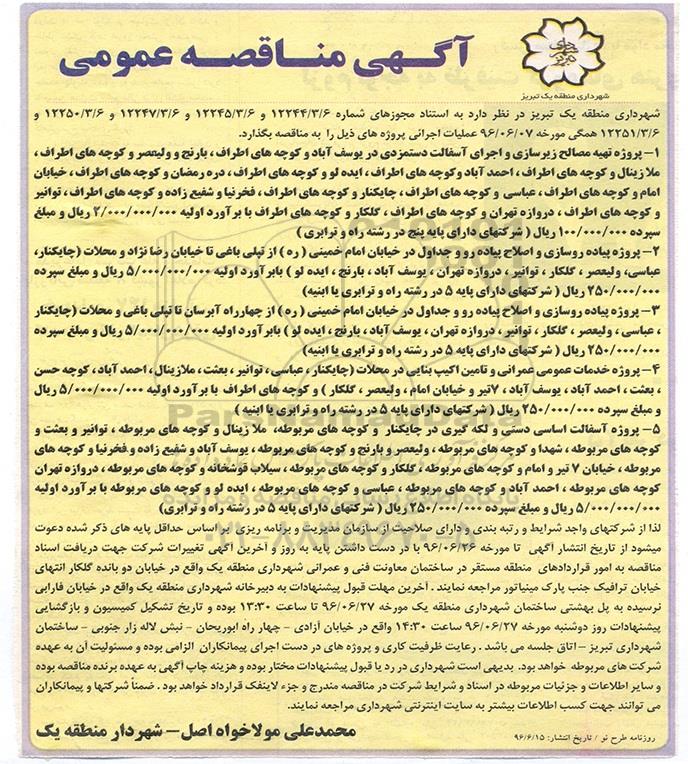 آگهی مناقصه عمومی
شهرداری منطقه یک تبریز
شهرداری منطقه یک تبریز در نظر دارد به استناد مجوزهای شماره ۱۲۲۴۴/۳/۶ و ۱۲۲۴۵/۳/۶ و ۱۲۲۴۷/۳/۶ و ۱۲۲۵۰/۳/۶ و
۱۲۲۵۱/۳/۶ همگی مورخه ۹۶/۰۶/۰۷ عملیات اجرائی پروژه های ذیل را به مناقصه بگذارد.
۱– پروژه تهیه مصالح زیرسازی و اجرای آسفالت دستمزدی در یوسف آباد و کوچه های اطراف ، بارنج و ولیعصر و کوچه های اطراف ،
ملا زینال و کوچه های اطراف ، احمد آباد وکوچه های اطراف ، ایده لو و کوچه های اطراف ، دره رمضان و کوچه های اطراف ، خیابان
امام و کوچه های اطراف ، عباسی و کوچه های اطراف ، چایکنار و کوچه های اطراف ، فخرنیا و شفیع زاده و کوچه های اطراف ، توانیر
و کوچه های اطراف ، دروازه تهران و کوچه های اطراف ، گلکار و کوچه های اطراف با برآورد اولیه ۲/۰۰۰/۰۰۰/۰۰۰ ریال و مبلغ
سپرده ۱۰۰/۰۰۰/۰۰۰ ریال ( شرکتهای دارای پایه پنج در رشته راه و ترابری )
۲– پروژه پیاده روسازی و اصلاح پیاده رو و جداول در خیابان امام خمینی ( ره ) از تپلی باغی تا خیابان رضا نژاد و محلات (چایکنار،
عباسی، ولیعصر ، گلکار ، توانیر ، دروازه تهران ، یوسف آباد ، بارنج ، ایده لو ) بابرآورد اولیه ۵/۰۰۰/۰۰۰/۰۰۰ ریال و مبلغ سپرده
۲۵۰/۰۰۰/۰۰۰ ریال ( شرکتهای دارای پایه ۵ در رشته راه و ترابری یا ابنیه)
۳– پروژه پیاده روسازی و اصلاح پیاده رو و جداول در خیابان امام خمینی ( ره ) از چهارراه آبرسان تا تپلی باغی و محلات (چایکنار
، عباسی ، ولیعصر ، گلکار ، توانیر ، دروازه تهران ، یوسف آباد ، بارنج ، ایده لو ) بابرآورد اولیه ۵/۰۰۰/۰۰۰/۰۰۰ ریال و مبلغ سپرده
۲۵۰/۰۰۰/۰۰۰ ریال ( شرکتهای دارای پایه ۵ در رشته راه و ترابری یا ابنیه)
۴– پروژه خدمات عمومی عمرانی و تامین اکیپ بنایی در محلات (چایکنار ، عباسی ، توانیر ، بعثت ، ملازینال ، احمد آباد ، کوچه حسن
، بعثت ، احمد آباد ، یوسف آباد ، ۷تیر و خیابان امام ، ولیعصر ، گلکار ) و کوچه های اطراف با برآورد اولیه ۵/۰۰۰/۰۰۰/۰۰۰ ریال
و مبلغ سپرده ۲۵۰/۰۰۰/۰۰۰ ریال ( شرکتهای دارای پایه ۵ در رشته راه و ترابری یا ابنیه )
۵– پروژه آسفالت اساسی دستی و لکه گیری در چایکنار و کوچه های مربوطه، ملا زینال و کوچه های مربوطه ، توانیر و بعثت و
کوچه های مربوطه ، شهدا و کوچه های مربوطه ، ولیعصر و بارنج و کوچه های مربوطه ، یوسف آباد و شفیع زاده و فخرنیا و کوچه های
مربوطه ، خیابان ۷ تیر و امام و کوچه های مربوطه ، گلکار و کوچه های مربوطه ، سیلاب قوشخانه و کوچه های مربوطه ، دروازه تهران
کوچه های مربوطه ، احمد آباد و کوچه های مربوطه ، عباسی و کوچه های مربوطه ، ایده لو و کوچه های مربوطه با برآورد اولیه
۵/۰۰۰/۰۰۰/۰۰۰ ریال و مبلغ سپرده ۲۵۰/۰۰۰/۰۰۰ ریال ( شرکتهای دارای پایه ۵ در رشته راه و ترابری)
لذا از شرکتهای واجد شرایط و رتبه بندی و دارای صلاحیت از سازمان مدیریت و برنامه ریزی بر اساس حداقل پایه های ذکر شده دعوت
میشود از تاریخ انتشار آگهی تا مورخه ۹۶/۰۶/۲۶ با در دست داشتن پایه به روز و آخرین آگهی تغییرات شرکت جهت دریافت اسناد
مناقصه به امور قراردادهای منطقه مستقر در ساختمان معاونت فنی و عمرانی شهرداری منطقه یک واقع در خیابان دو بانده گلکار انتهای
خیابان ترافیک جنب پارک مینیاتور مراجعه نمایند . آخرین مهلت قبول پیشنهادات به دبیرخانه شهرداری منطقه یک واقع در خیابان فارابی
نرسیده به پل بهشتی ساختمان شهرداری منطقه یک مورخه ۹۶/۰۶/۲۷ تا ساعت ۱۳:۳۰ بوده و تاریخ تشکیل کمیسیون و بازگشایی
پیشنهادات روز دوشنبه مورخه ۹۶/۰۶/۲۷ ساعت ۱۴:۳۰ واقع در خیابان آزادی – چهار راه ابوریحان – نبش لاله زار جنوبی – ساختمان
شهرداری تبریز – اتاق جلسه می باشد . رعایت ظرفیت کاری و پروژه های در دست اجرای پیمانکاران الزامی بوده و مسئولیت آن به عهده
شرکت های مربوطه خواهد بود. بدیهی است شهرداری در رد یا قبول پیشنهادات مختار بوده و هزینه چاپ آگهی به عهده برنده مناقصه بوده
و سایر اطلاعات و جزئیات مربوطه در اسناد و شرایط شرکت در مناقصه مندرج و جزء لاینفک قرارداد خواهد بود . ضمناً شرکتها و پیمانکاران
می توانند جهت کسب اطلاعات بیشتر به سایت اینترنتی شهرداری مراجعه نمایند.
محمدعلی مولاخواه اصل– شهردار منطقه یک
روزنامه طرح نو / تاریخ انتشار: ۹۶/۶/۱۵